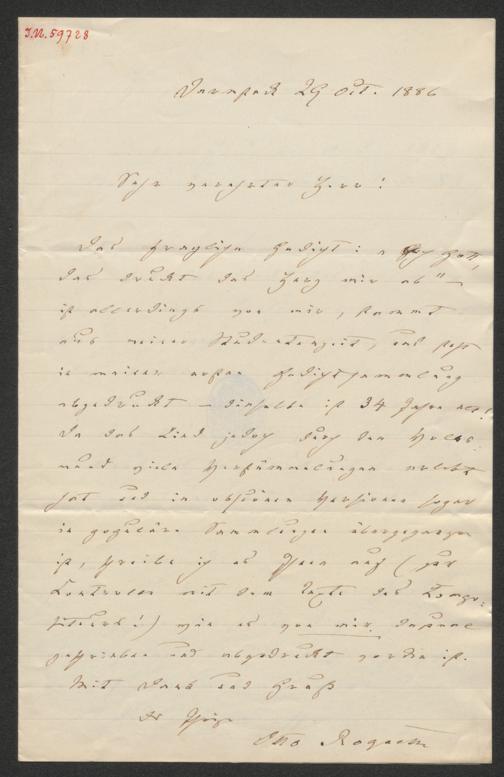 I.N. 59728
Darmstadt 29 Oct. 1886
Sehr verehrter Herr!
Das fragliche Gedicht: „Ach Gott,
das drückt das Herz mir ab" —
ist allerdings von mir, stammt
aus meiner Studentenzeit, und steht
in meiner ersten Gedichtsammlung
abgedruckt — dieselbe ist 34 Jahre alt!
Da das Lied jedoch durch den Volks-
mund viele Verstümmelungen erlebt
hat und in obscönen Versionen sogar
in populäre Sammlungen übergegangen
ist, schreibe ich es Ihnen auf (zur
Kontrolle mit dem Texte des Kompo-
nisten!) wie es von mir damals
geschrieben und abgedruckt worden ist.
Mit Dank und Gruß
Ihr
Otto Roquette